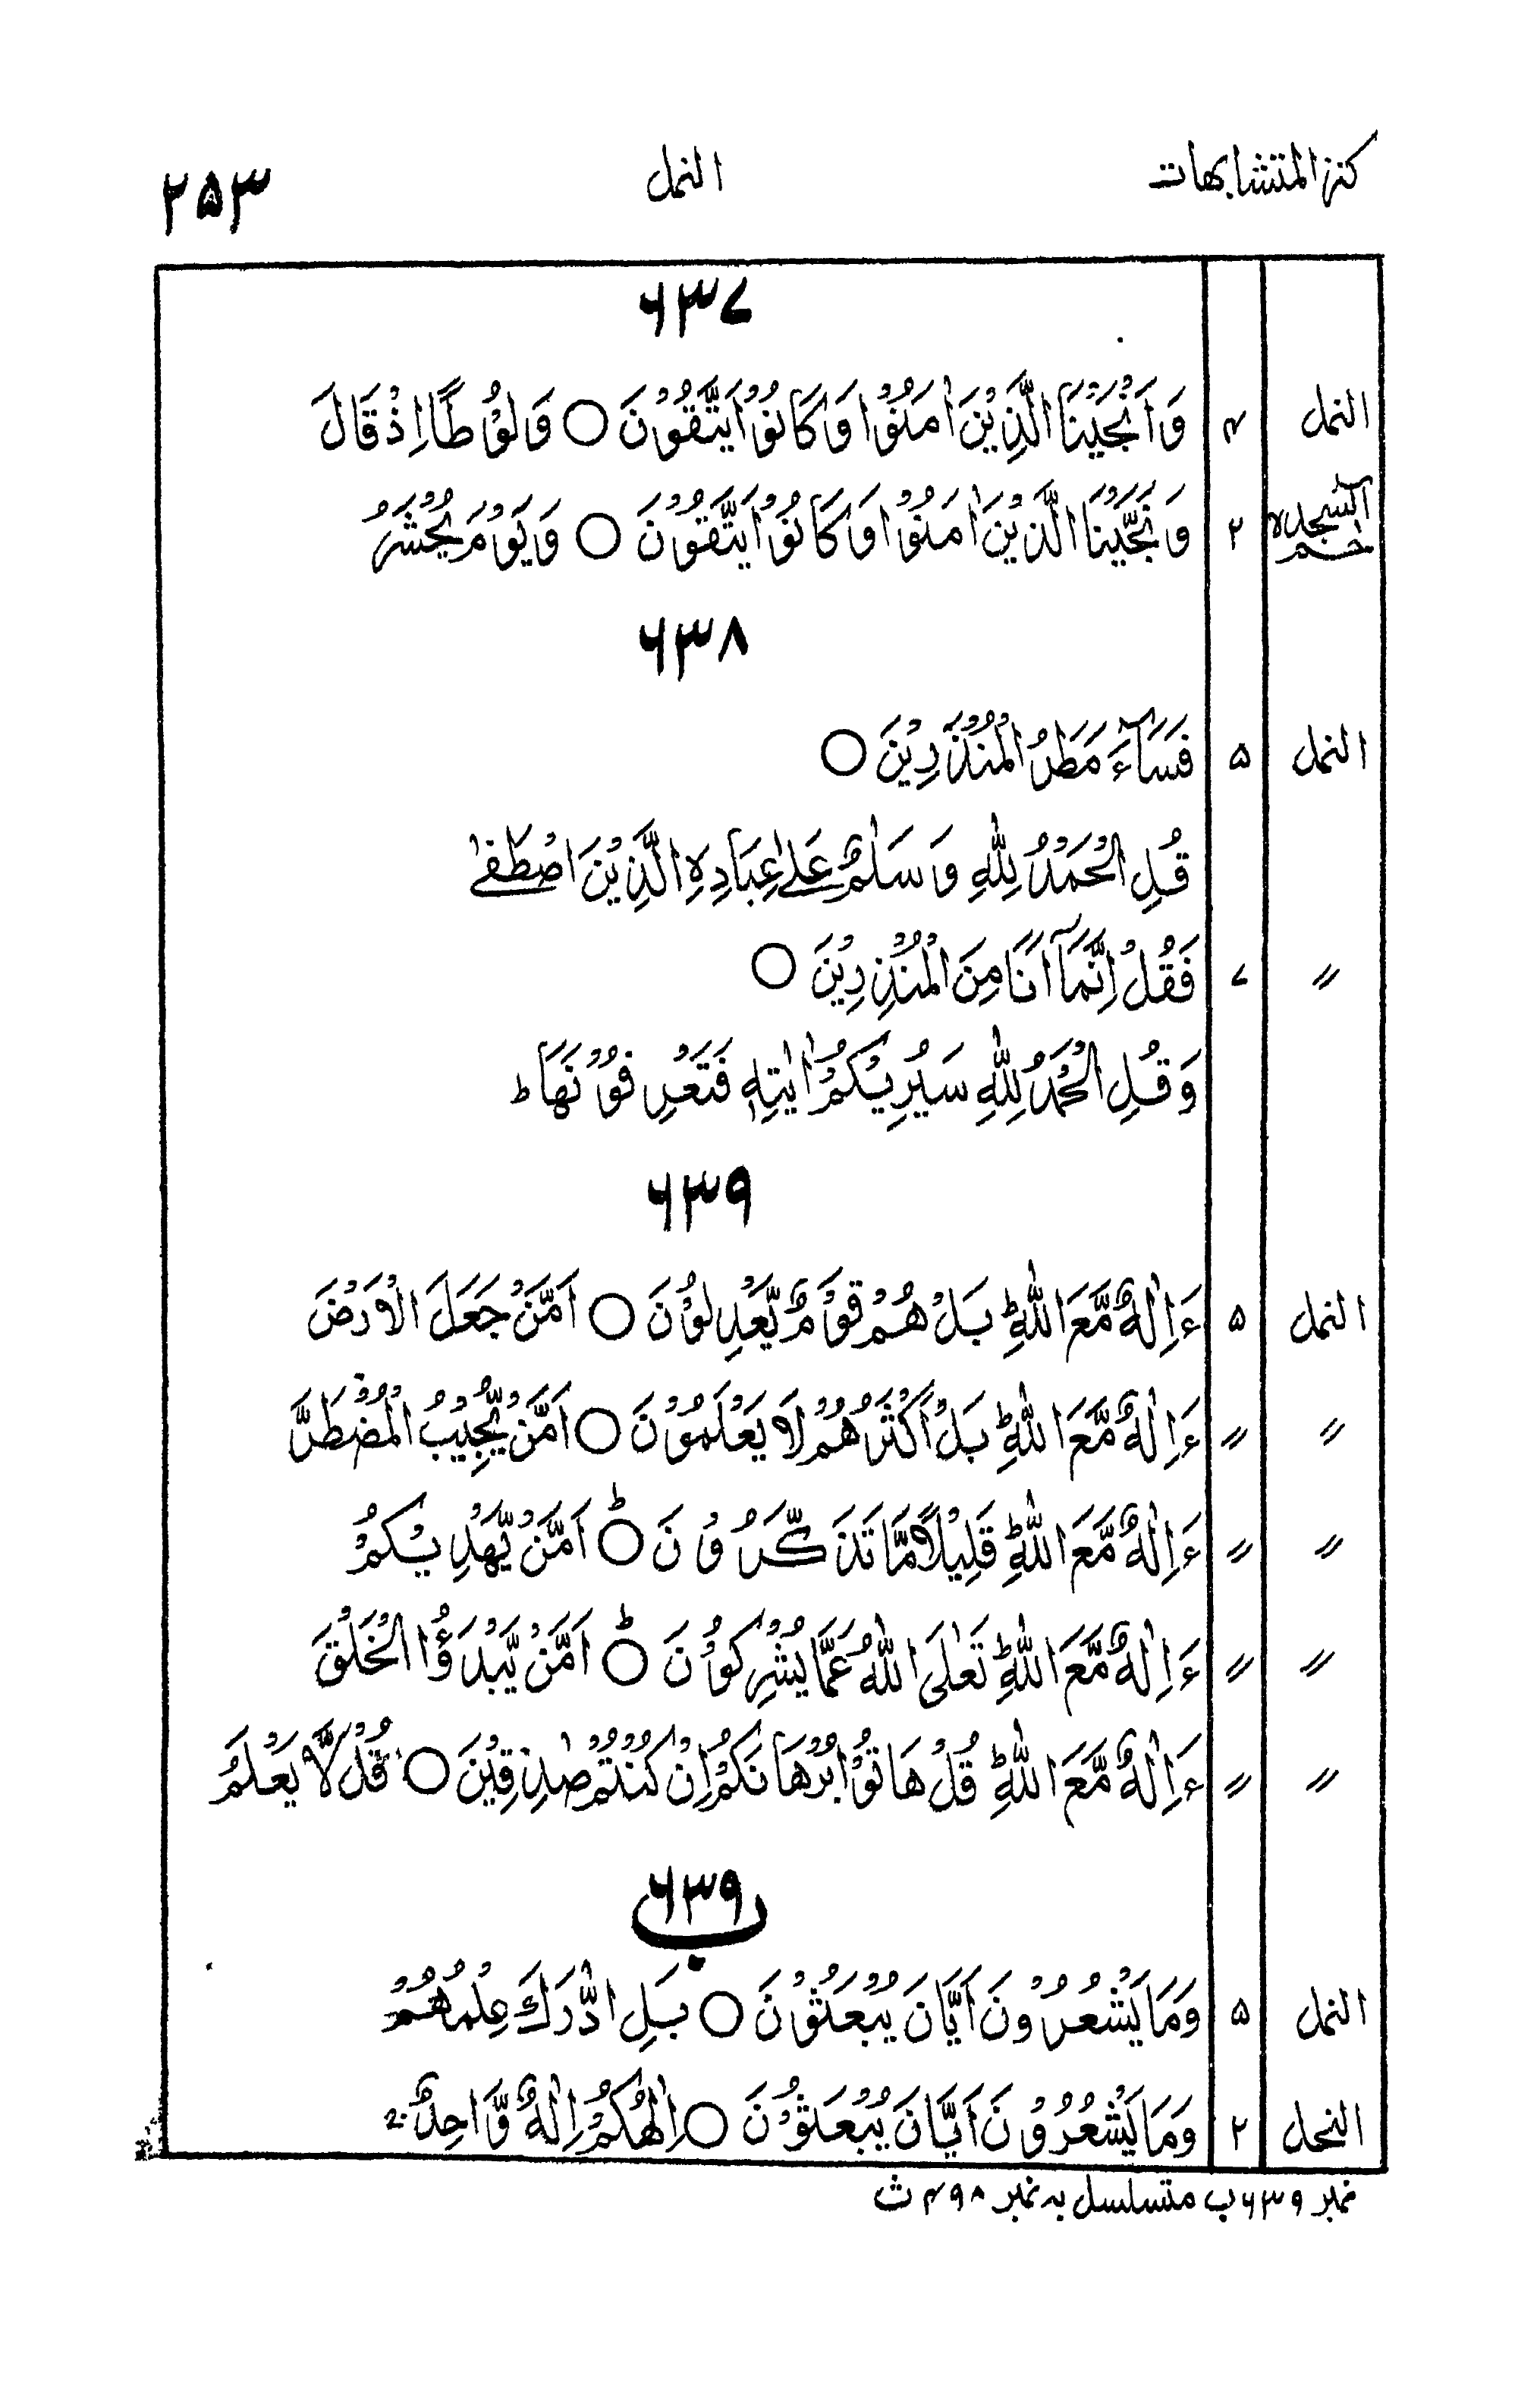 کنز المتشابهات النمل ۲۵۳
۶۳۷
النمل ۴ وَاَنْجَيْنَا الَّذِيْنَ اٰمَنُوْا وَكَانُوْا يَتَّقُوْنَ ○ وَلُوْطًا اِذْ قَالَ
حٰم السجدہ ۲ وَنَجَّيْنَا الَّذِيْنَ اٰمَنُوْا وَكَانُوْا يَتَّقُوْنَ ○ وَيَوْمَ يُحْشَرُ
۶۳۸
النمل ۵ فَسَآءَ مَطَرُ الْمُنْذَرِيْنَ ○
قُلِ الْحَمْدُ لِلّٰهِ وَسَلٰمٌ عَلٰى عِبَادِهِ الَّذِيْنَ اصْطَفٰى
〃 ۷ فَقُلْ اِنَّمَآ اَنَا مِنَ الْمُنْذِرِيْنَ ○
وَقُلِ الْحَمْدُ لِلّٰهِ سَيُرِيْكُمْ اٰيٰتِهٖ فَتَعْرِفُوْنَهَا ط
۶۳۹
النمل ۵ ءَاِلٰهٌ مَّعَ اللّٰهِ ؕ بَلْ هُمْ قَوْمٌ يَّعْدِلُوْنَ ○ اَمَّنْ جَعَلَ الْاَرْضَ
〃 〃 ءَاِلٰهٌ مَّعَ اللّٰهِ ؕ بَلْ اَكْثَرُهُمْ لَا يَعْلَمُوْنَ ○ اَمَّنْ يُّجِيْبُ الْمُضْطَرَّ
〃 〃 ءَاِلٰهٌ مَّعَ اللّٰهِ ؕ قَلِيْلًا مَّا تَذَكَّرُوْنَ ○ؕ اَمَّنْ يَّهْدِيْكُمْ
〃 〃 ءَاِلٰهٌ مَّعَ اللّٰهِ ؕ تَعٰلَى اللّٰهُ عَمَّا يُشْرِكُوْنَ ○ؕ اَمَّنْ يَّبْدَؤُا الْخَلْقَ
〃 〃 ءَاِلٰهٌ مَّعَ اللّٰهِ ؕ قُلْ هَاتُوْا بُرْهَانَكُمْ اِنْ كُنْتُمْ صٰدِقِيْنَ ○ قُلْ لَّا يَعْلَمُ
۶۳۹ب
النمل ۵ وَمَا يَشْعُرُوْنَ اَيَّانَ يُبْعَثُوْنَ ○ بَلِ ادّٰرَكَ عِلْمُهُمْ
النحل ۲ وَمَا يَشْعُرُوْنَ اَيَّانَ يُبْعَثُوْنَ ○ اِلٰهُكُمْ اِلٰهٌ وَّاحِدٌ ۚ
نمبر ۶۳۹ب متسلسل بہ نمبر ۴۹۸ ث